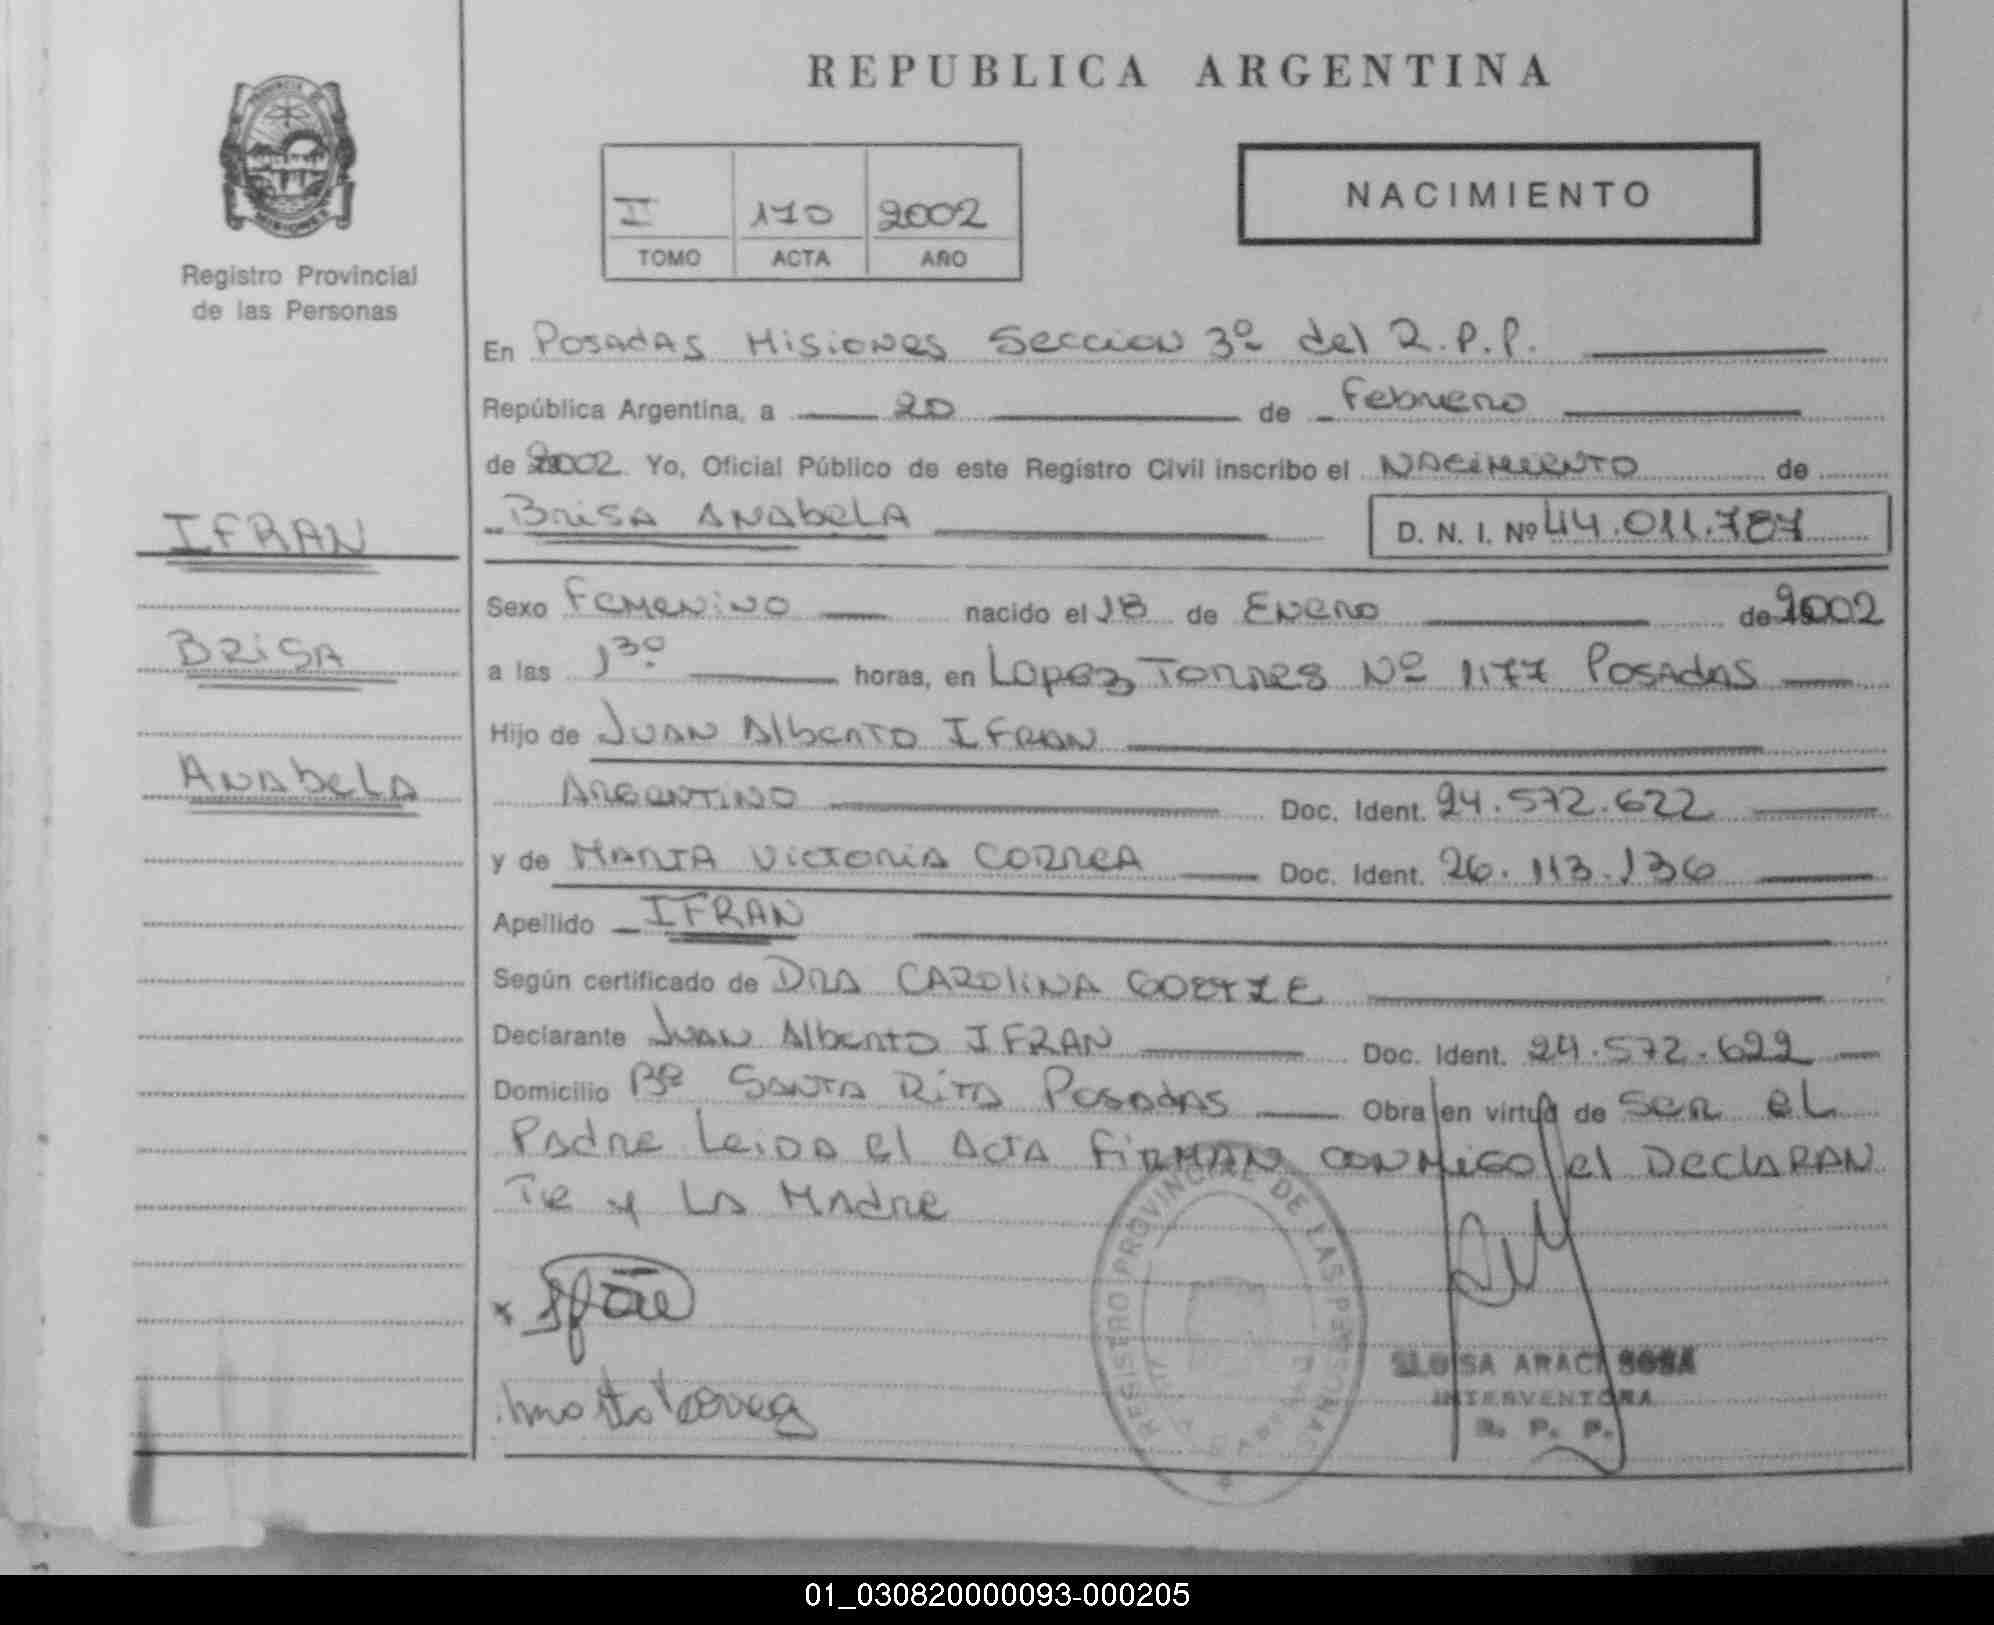 REPUBLICA ARGENTINA
NACIMIENTO
II 170 2002
TOMO ACTA AÑO
Registro Provincial
de las Personas
En Posadas Misiones Seccion 3º del R.P.P.
República Argentina, a 20 de Febrero
de 2002 Yo, Oficial Público de este Registro Civil inscribo el NACIMIENTO de
BRISA ANABELA D. N. I. Nº 44.011.787
IFRAN
BRISA
ANABELA
Sexo Femenino nacido el 18 de Enero de 2002
a las 1 30 horas, en Lopez Torres Nº 1177 Posadas
Hijo de Juan Alberto IFRAN
Argentino Doc. Ident. 24.572.622
y de Marta Victoria Correa Doc. Ident. 26.113.136
Apellido IFRAN
Según certificado de Dra CAROLINA
Declarante Juan Alberto IFRAN Doc. Ident. 24.572.622
Domicilio Bº Santa Rita Posadas Obra en virtud de Ser el
Padre Leida el Acta Firman conmigo el Declaran
Te y La Madre
REGISTRO PROVINCIAL DE LAS PERSONAS
ARACI SOSA
INTERVENTORA
R. P. P.
01_030820000093-000205